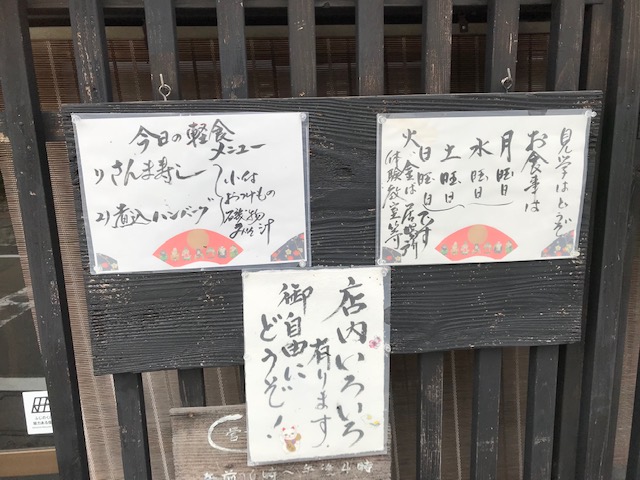 今日の軽食
メニュー
1)さんま寿し
2)煮込ハンバーグ
小付
おつけもの
みそ汁
見学はどうぞ
お食事は
月曜日
水曜日
土曜日
日曜日です
火金は居場所
体験教室等
店内いろいろ
有ります
御自由に
どうぞ!
営
午前10時〜午後4時